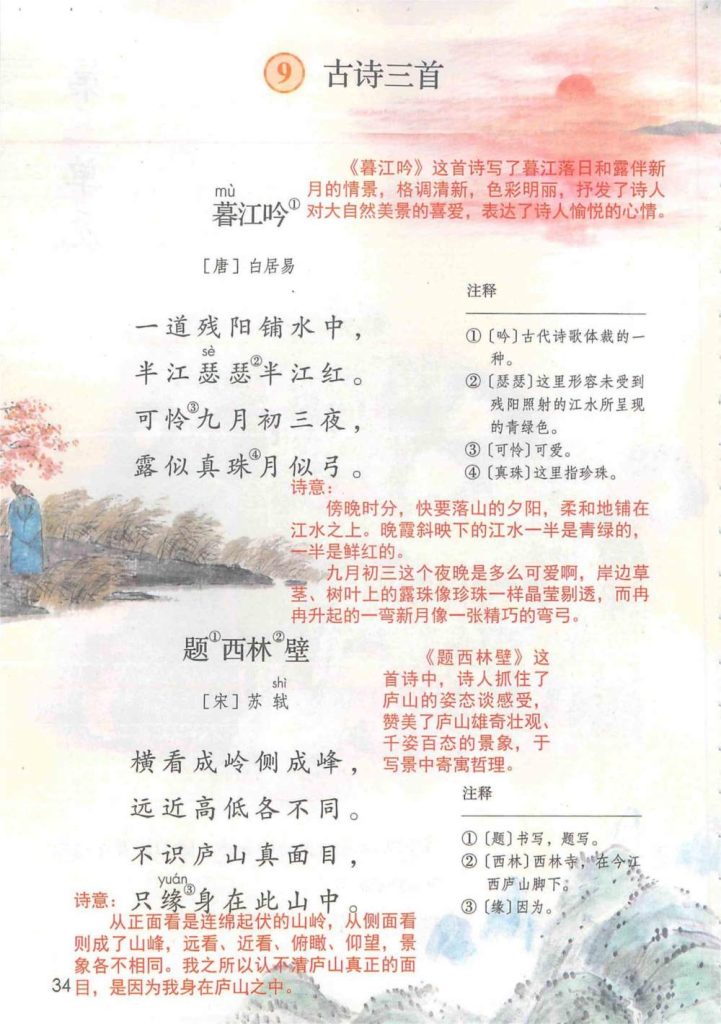 9 古诗三首
《暮江吟》这首诗写了暮江落日和露伴新
月的情景，格调清新，色彩明丽，抒发了诗人
对大自然美景的喜爱，表达了诗人愉悦的心情。
mù
暮江吟①
［唐］白居易
一道残阳铺水中，
sè
半江瑟瑟②半江红。
可怜③九月初三夜，
露似真珠④月似弓。
注释
①〔吟〕古代诗歌体裁的一
种。
②〔瑟瑟〕这里形容未受到
残阳照射的江水所呈现
的青绿色。
③〔可怜〕可爱。
④〔真珠〕这里指珍珠。
诗意：
傍晚时分，快要落山的夕阳，柔和地铺在
江水之上。晚霞斜映下的江水一半是青绿的，
一半是鲜红的。
九月初三这个夜晚是多么可爱啊，岸边草
茎、树叶上的露珠像珍珠一样晶莹剔透，而冉
冉升起的一弯新月像一张精巧的弯弓。
题①西林②壁
shì
［宋］苏轼
《题西林壁》这
首诗中，诗人抓住了
庐山的姿态谈感受，
赞美了庐山雄奇壮观、
千姿百态的景象，于
写景中寄寓哲理。
横看成岭侧成峰，
远近高低各不同。
不识庐山真面目，
yuán
只缘③身在此山中。
注释
①〔题〕书写，题写。
②〔西林〕西林寺，在今江
西庐山脚下。
③〔缘〕因为。
诗意：
从正面看是连绵起伏的山岭，从侧面看
则成了山峰，远看、近看、俯瞰、仰望，景
象各不相同。我之所以认不清庐山真正的面
目，是因为我身在庐山之中。
34